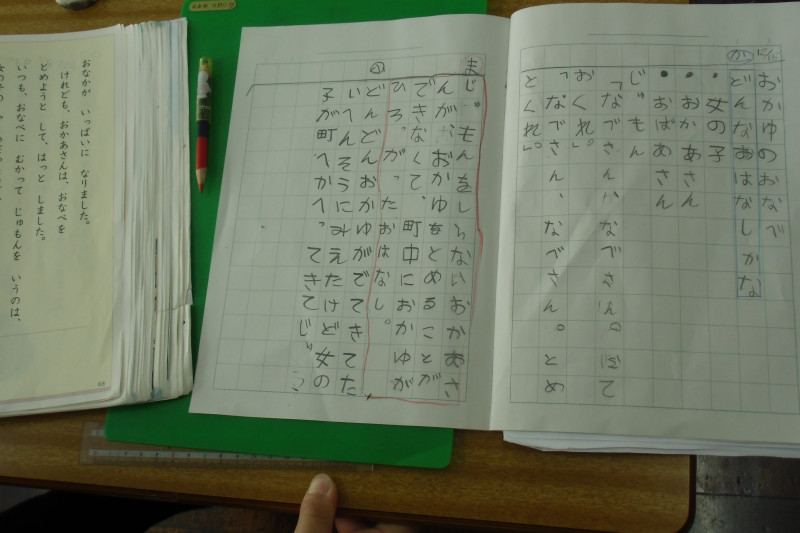 おかゆのおなべ
か
どんなおはなしかな
・女の子
・おかあさん
・おばあさん
じゅもん
「なべさん、なべさん。にて
おくれ。」
「なべさん、なべさん。とめ
とくれ。」
ま
じゅもんをしらないおかあさ
んが、おかゆをとめることが
できなくて、町中におかゆが
ひろがったおはなし。
どんどんおかゆがでてきてた
いへんそうにみえたけど女の
子が町へかへってきてじ
おなかが いっぱいに なりました。
けれども、おかあさんは、おなべを
とめようと して、はっと しました。
いつも、おなべに むかって じゅもんを いうのは、